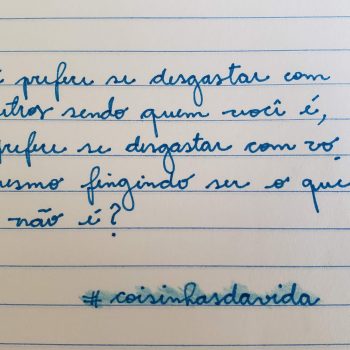 ê prefere se desgastar com
utros sendo quem você é,
prefere se desgastar com vo
esmo fingindo ser o que
não é?
# coisinhasdavida